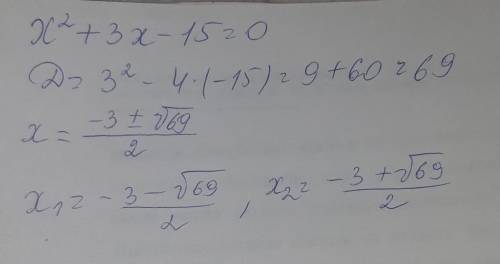 x² + 3x - 15 = 0
D = 3² - 4·(-15) = 9 + 60 = 69
x = (-3 ± √69)/2
x₁ = - (3 - √69)/2 , x₂ = (-3 + √69)/2